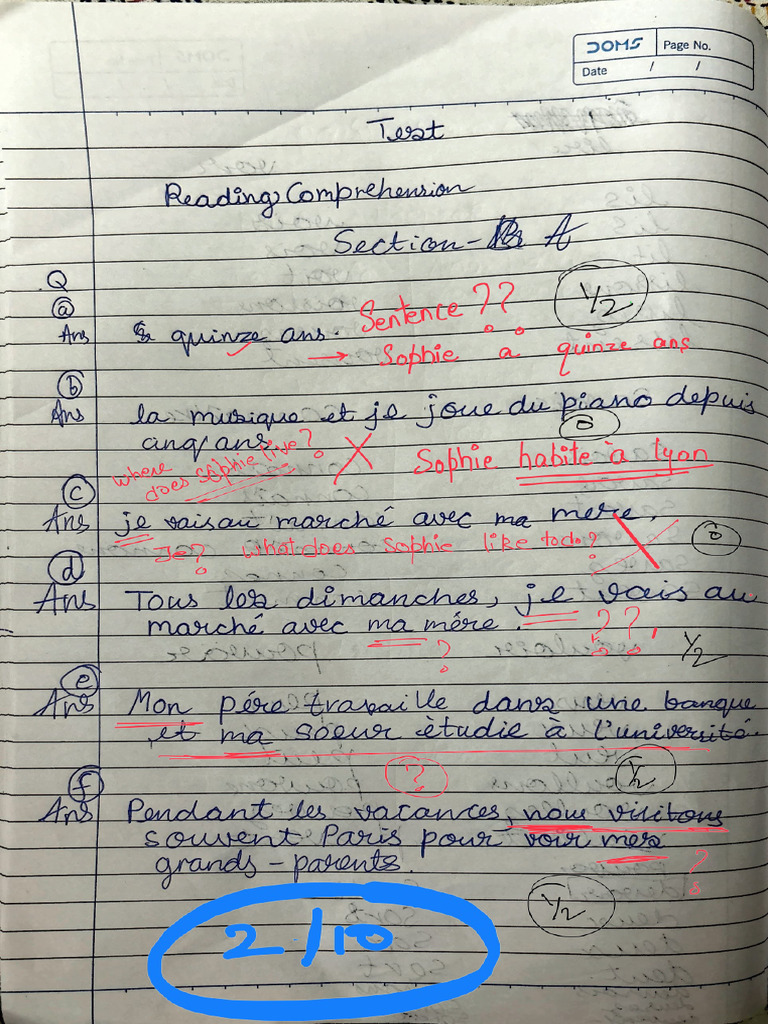 DOMS Page No.
Date / /
Test
Reading Comprehension
Section - A
Q
a
Ans quinze ans. Sentence ?? 1/2
→ Sophie a quinze ans
b
Ans la musique et je joue du piano depuis
cinq ans 0
where does Sophie live? Sophie habite à Lyon
c
Ans je vais au marché avec ma mere,
Je? what does Sophie like to do? 0
d
Ans Tous les dimanches, je vais au
marché avec ma mére. ? ??, 1/2
e
Ans Mon pére travaille dans une banque
et ma soeur ètudie à l'université.
? 1/2
f
Ans Pendant les vacances, nous visitons
souvent Paris pour voir mes
grands-parents. ?
1/2
2/10